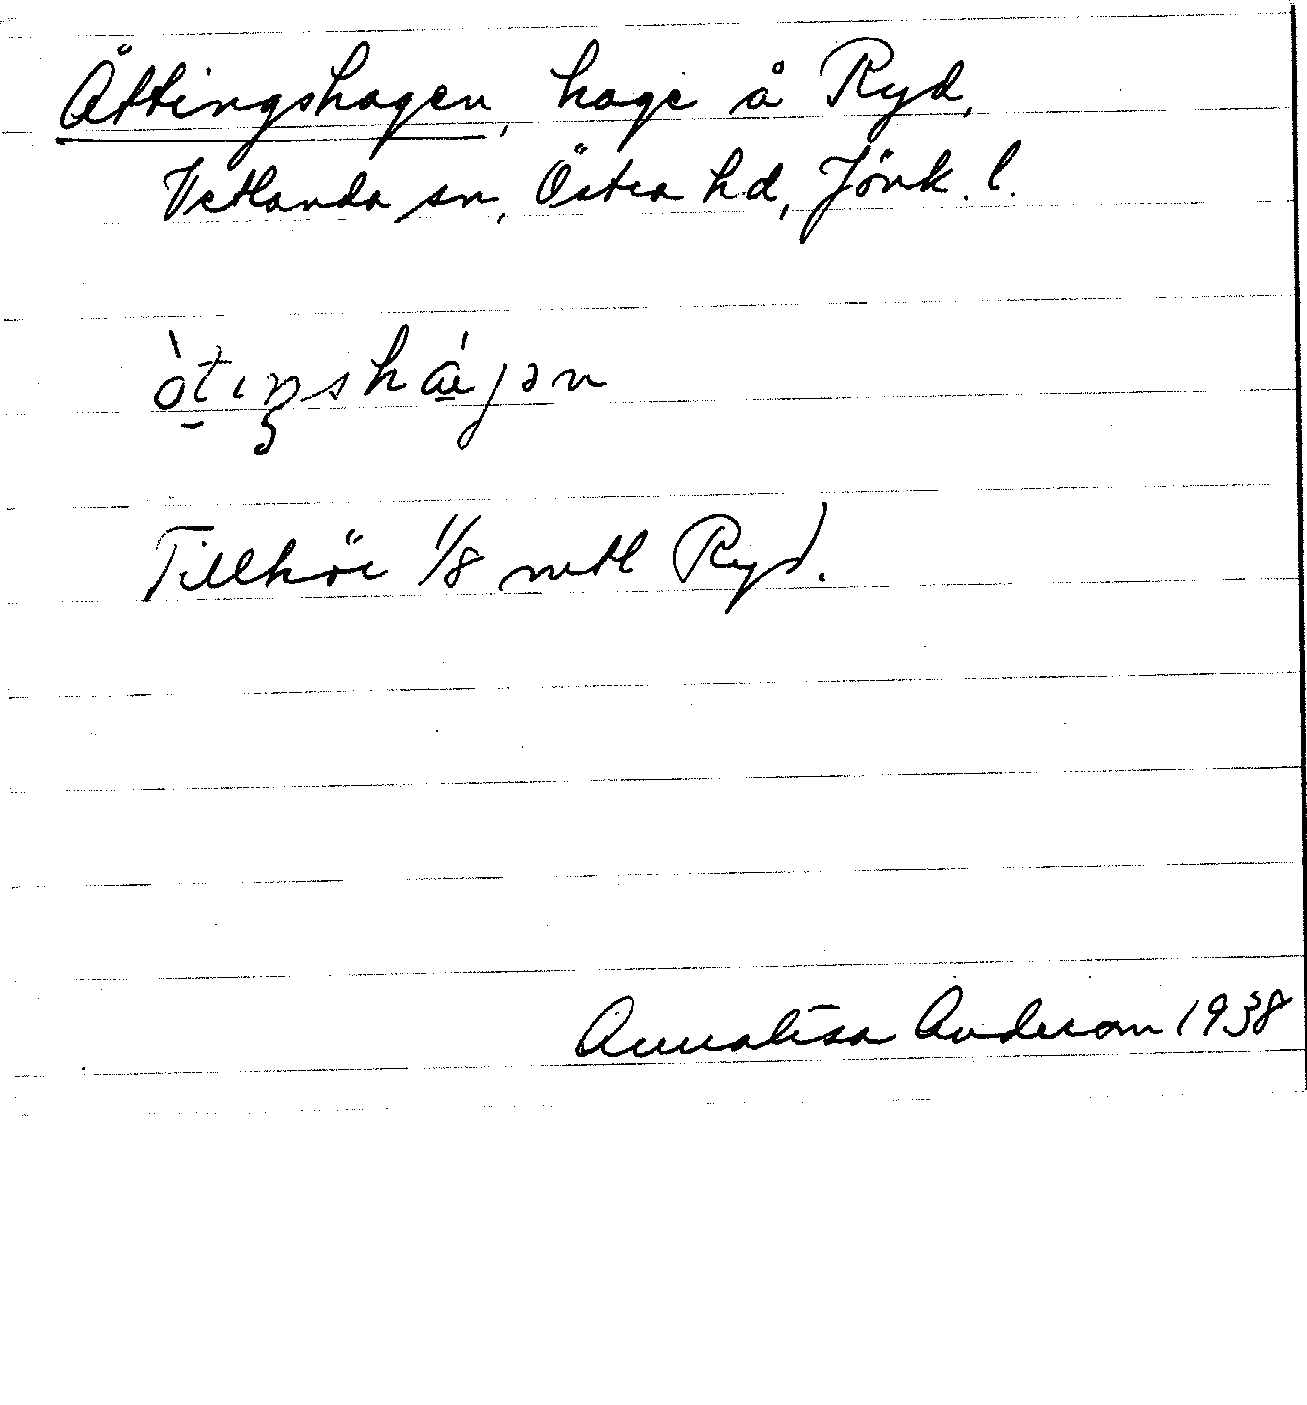 Åttingshagen, hage å Ryd,
Vetlanda sn, Östra hd, Jönk. l.
Tillhör 1/8 mtl Ryd.
Annalisa Anderson 1938